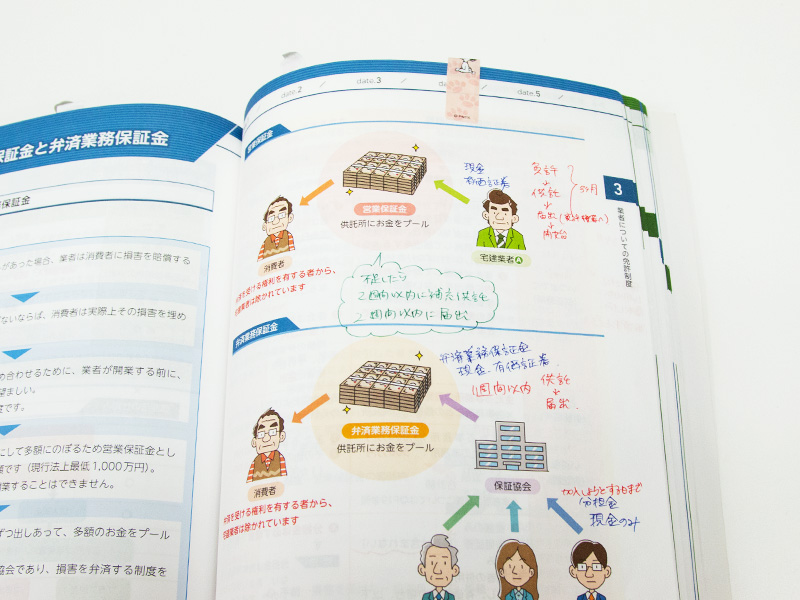 保証金と弁済業務保証金
保証金
があった場合、業者は消費者に損害を賠償する
ないならば、消費者は実際上その損害を埋め
め合わせるために、業者が開業する前に、
望ましい。
度です。
にして多額にのぼるため営業保証金とし
額です（現行法上最低1,000万円）。
開業することはできません。
ずつ出しあって、多額のお金をプール
協会であり、損害を弁済する制度を
date.2 /
date.3 /
date.5 /
営業保証金
営業保証金
供託所にお金をプール
消費者
宅建業者A
弁済を受ける権利を有する者から、
宅建業者は除かれています
現金
有価証券
免許
供託
届出(免許権者へ)
3ヶ月
不足したら
2週間以内に補充供託
2週間以内に届出
3
業者についての免許制度
弁済業務保証金
弁済業務保証金
現金、有価証券
1週間以内
供託
届出
弁済業務保証金
供託所にお金をプール
消費者
保証協会
弁済を受ける権利を有する者から、
宅建業者は除かれています
加入しようとする日まで
分担金
現金のみ